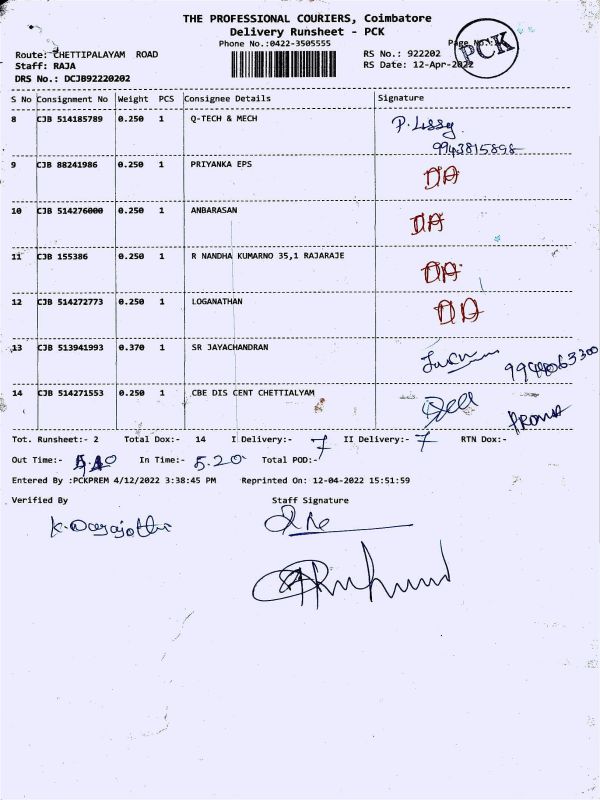 THE PROFESSIONAL COURIERS, Coimbatore
Delivery Runsheet - PCK
Phone No.:0422-3505555
Page No.:
PCK
Route: CHETTIPALAYAM ROAD
RS No.: 922202
Staff: RAJA
RS Date: 12-Apr-2022
DRS No.: DCJB92220202
S No Consignment No Weight PCS Consignee Details Signature
8 CJB 514185789 0.250 1 Q-TECH & MECH P. Lissy
9943815898
9 CJB 88241986 0.250 1 PRIYANKA EPS DA
10 CJB 514276000 0.250 1 ANBARASAN DA
11 CJB 155386 0.250 1 R NANDHA KUMARNO 35,1 RAJARAJE DA
12 CJB 514272773 0.250 1 LOGANATHAN DA
13 CJB 513941993 0.370 1 SR JAYACHANDRAN
14 CJB 514271553 0.250 1 CBE DIS CENT CHETTIALYAM
Tot. Runsheet:- 2 Total Dox:- 14 I Delivery:- 7 II Delivery:- 7 RTN Dox:-
Out Time:- In Time:- 5.20 Total POD:-
Entered By :PCKPREM 4/12/2022 3:38:45 PM Reprinted On: 12-04-2022 15:51:59
Verified By Staff Signature